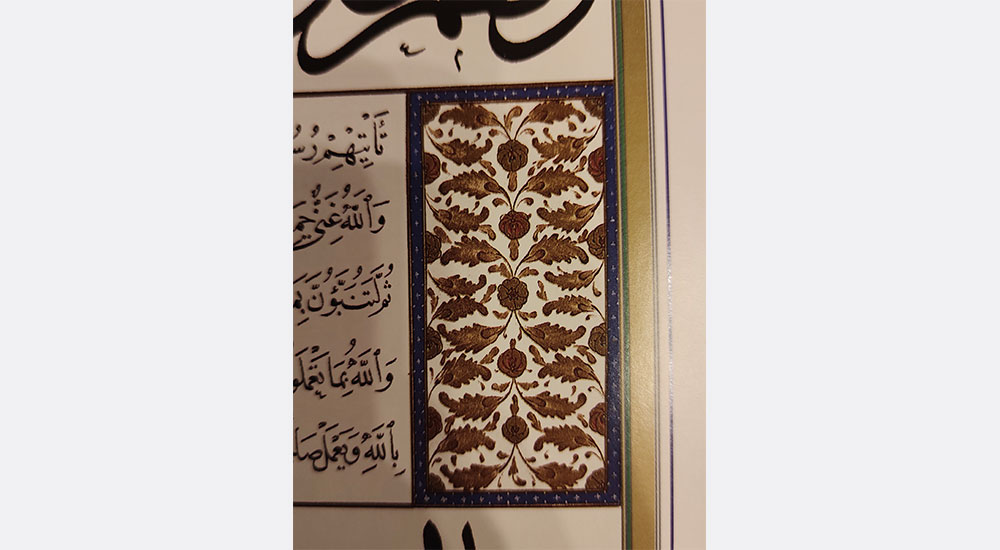 تَأْتِيهِمْ رُسُ
وَاللَّهُ غَنِيٌّ حَمِي
ثُمَّ لَتُنَبَّؤُنَّ بِمَ
وَاللَّهُ بِمَا تَعْمَلُو
بِاللَّهِ وَيَعْمَلْ صَالِ